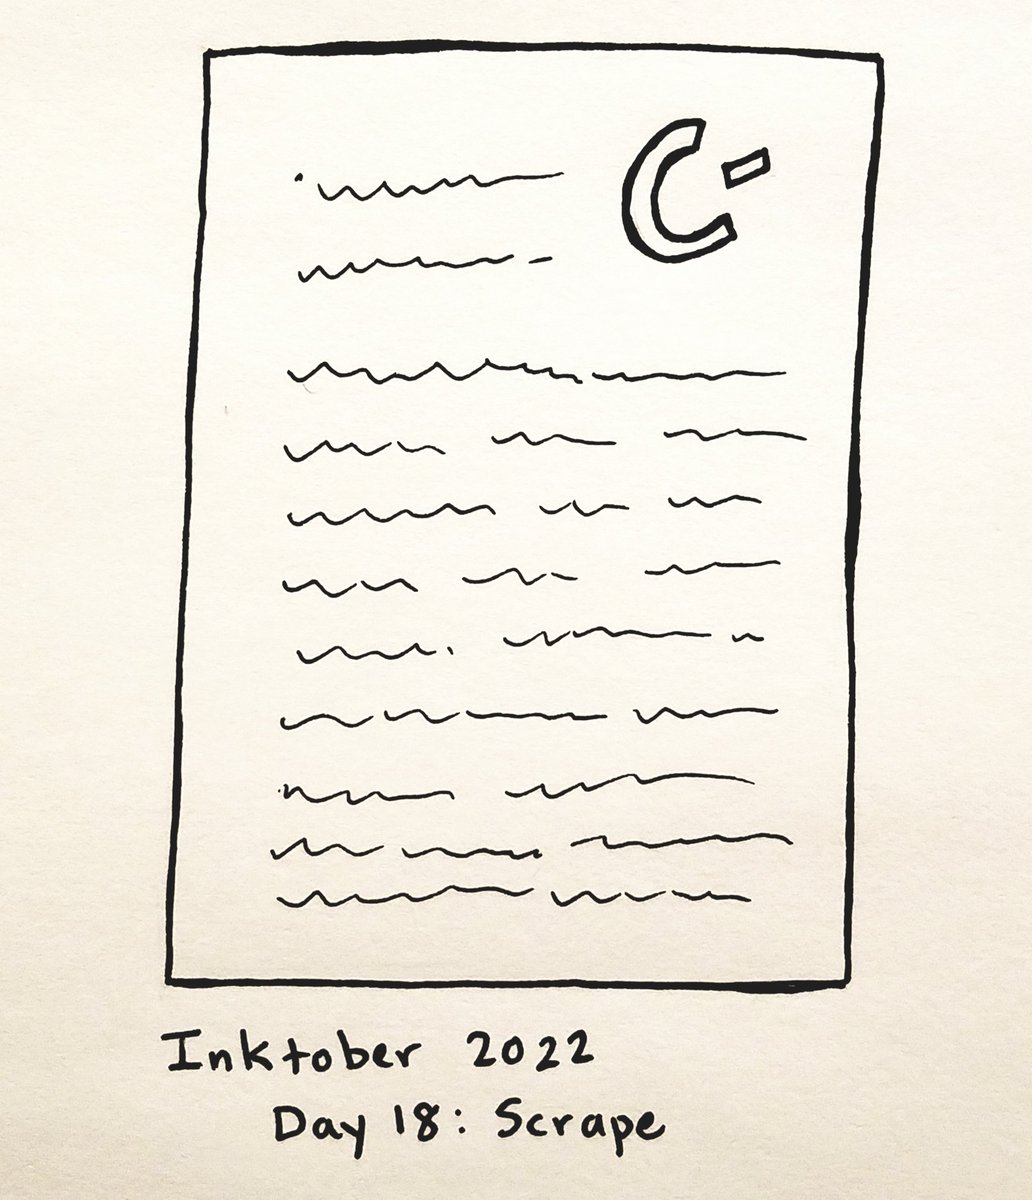 C-
Inktober 2022
Day 18: Scrape